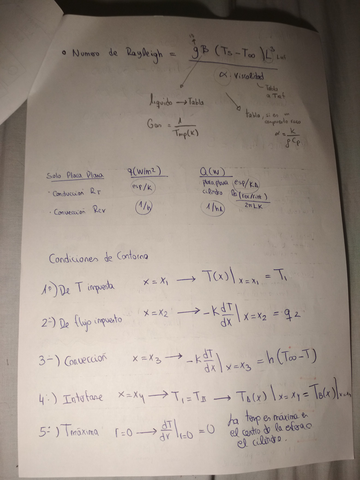 • Numero de Rayleigh = gB (Ts - T∞) L³
α · viscosidad
Tabla
a Tinf
liquido → Tabla
Gas = 1 / Tmp(K)
tabla, si no
α = k / ρ Cp
Solo Placa Plana q(W/m²) Q(W)
· Conduccion Rt esp/k placa plana esp/KA
cilindro ln(rext/rint) / 2πLK
· Conveccion Rcv 1/h 1/hA
Condiciones de Contorno
1º) De T impuesta x = x₁ → T(x)|x=x₁ = T₁
2º) De flujo impuesto x = x₂ → -k dT/dx |x=x₂ = q₂
3-) Conveccion x = x₃ → -k dT/dx |x=x₃ = h(T∞-T)
4.) Interfase x = x₄ → T₁ = TB → TB(x)|x=x₄ = TB(x)|x=x₄
5º) T maxima r=0 → dT/dr |r=0 = 0 La temp es máxima en
el centro de la esfera o
el cilindro.